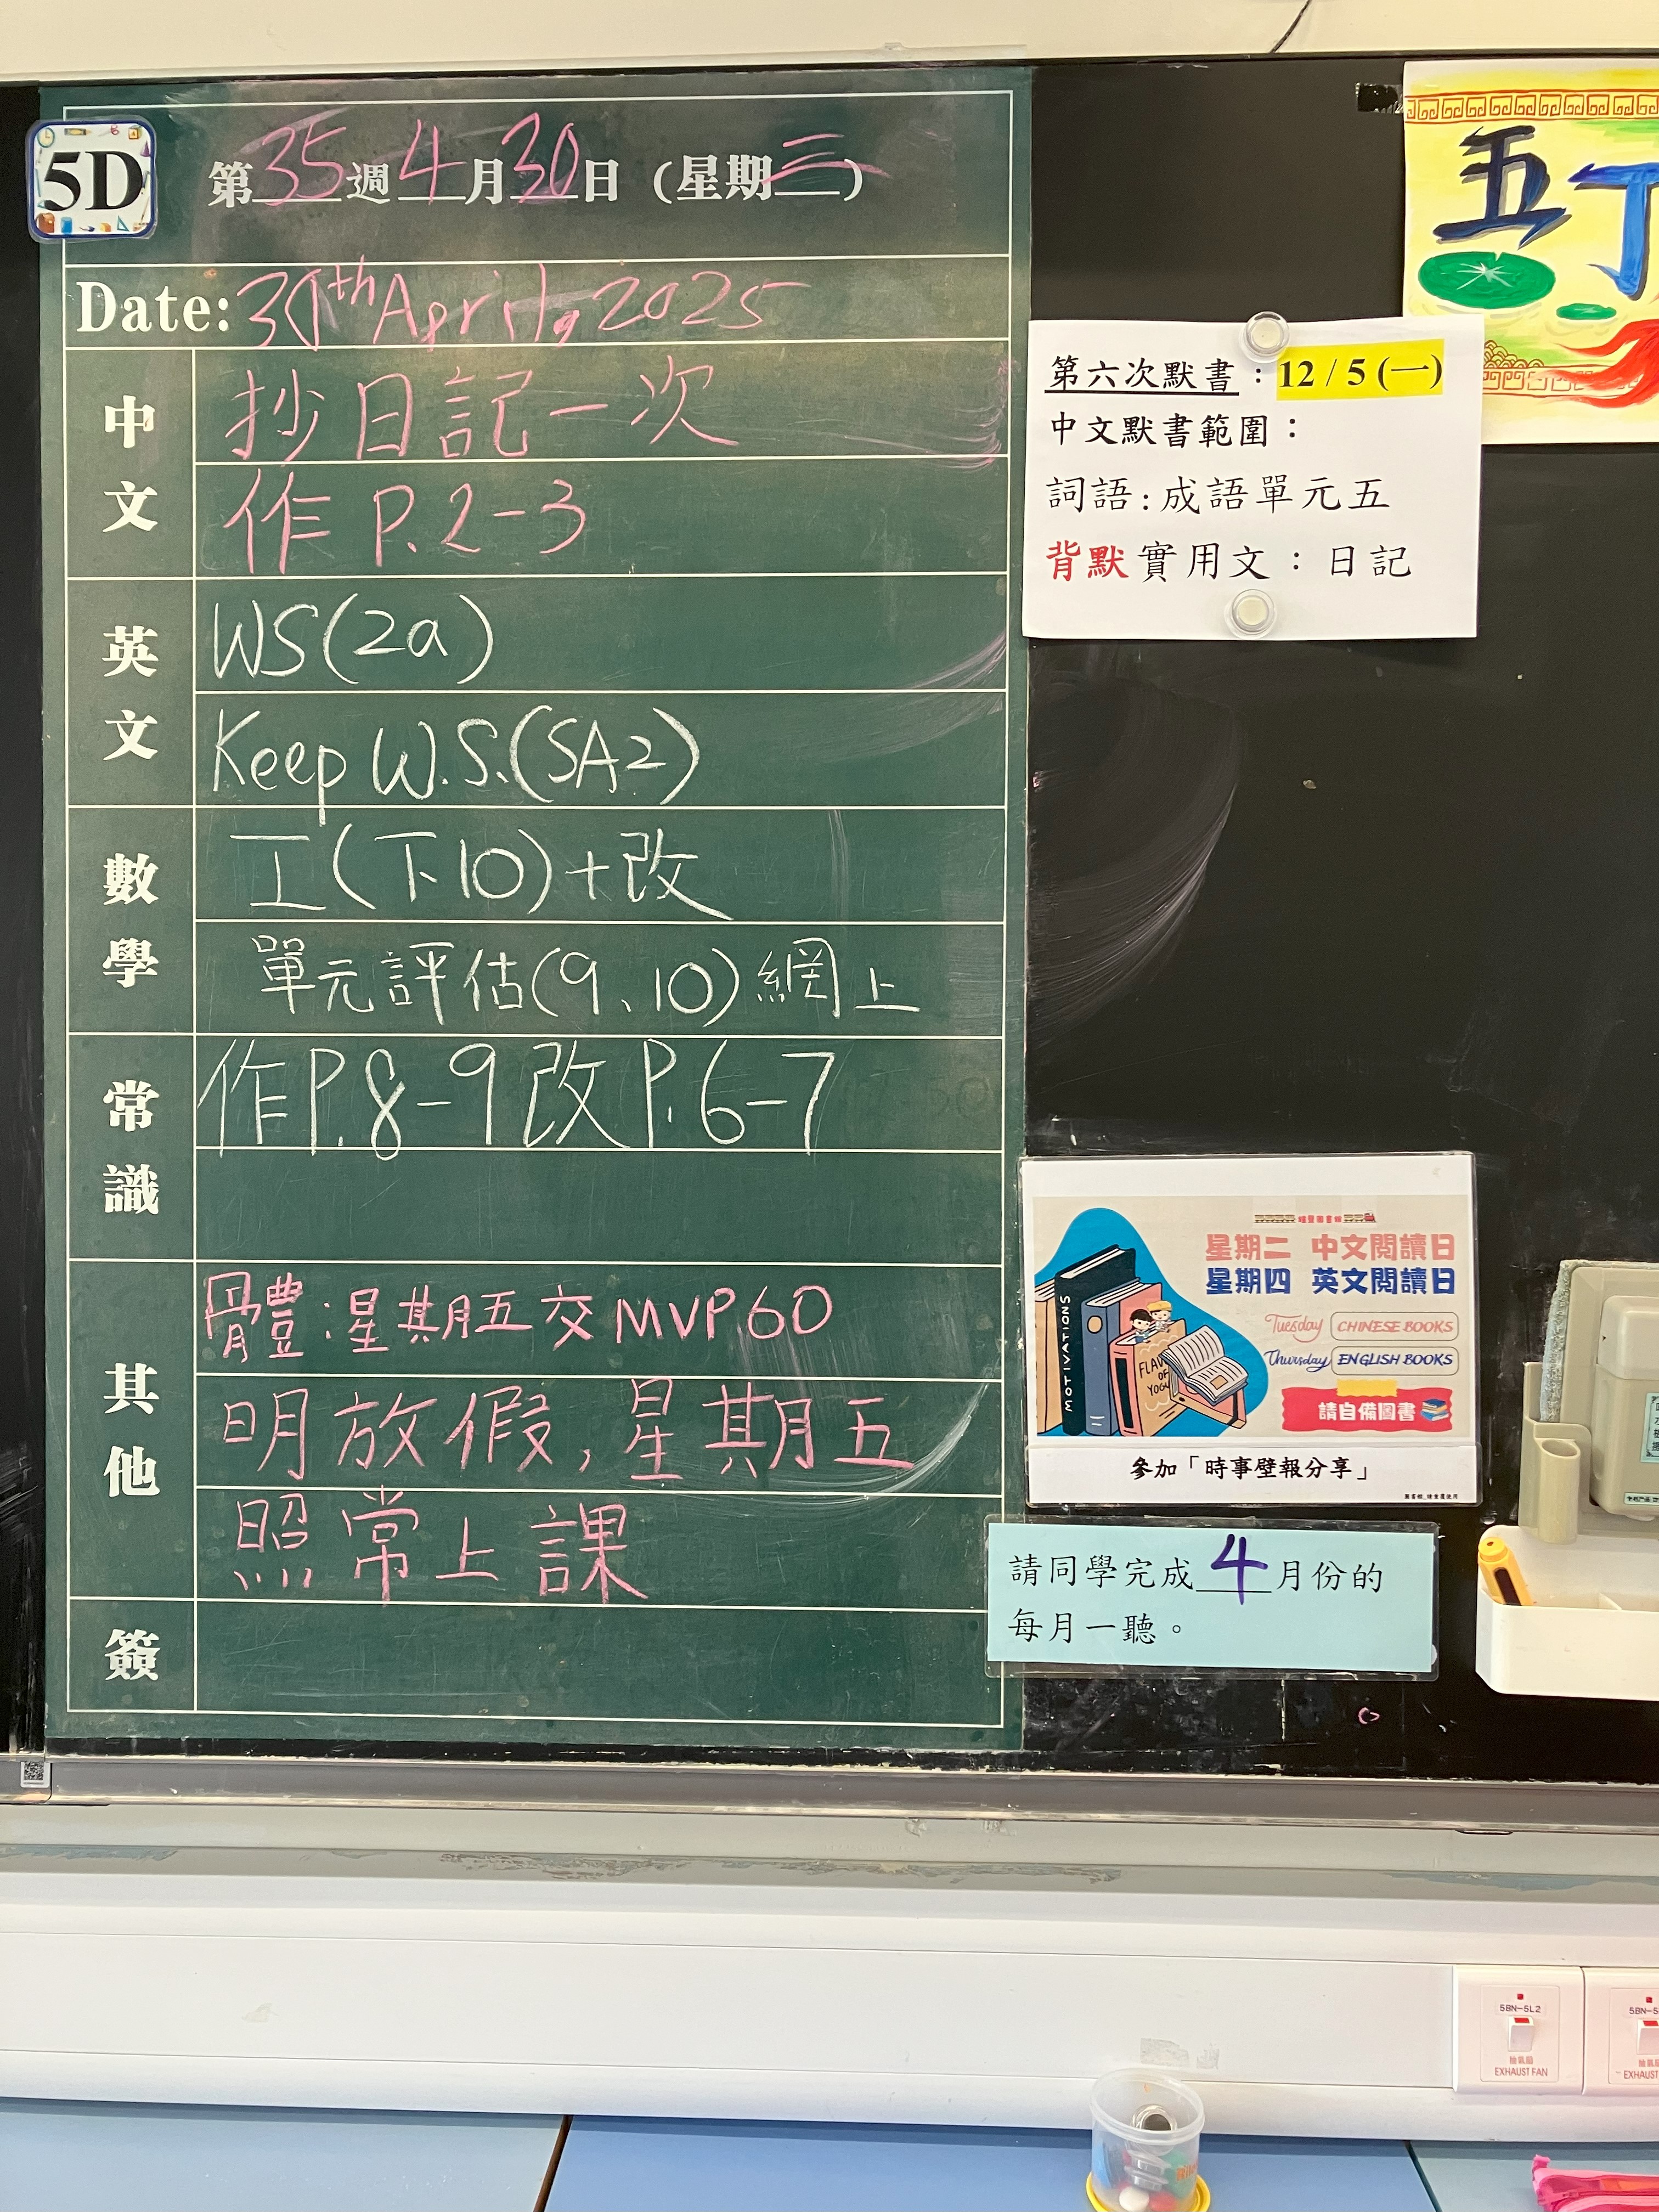 5D
第35週4月30日（星期三）
Date: 30th April, 2025
中文
抄日記一次
作 P.2-3
英文
WS(2a)
Keep W.S.(SA2)
數學
工(下10)+改
單元評估(9、10)網上
常識
作P.8-9 改P.6-7
其他
體：星期五交MVP60
明放假，星期五
照常上課
簽
五丁
第六次默書：12/5(一)
中文默書範圍：
詞語：成語單元五
背默實用文：日記
星期二 中文閱讀日
星期四 英文閱讀日
Tuesday CHINESE BOOKS
Thursday ENGLISH BOOKS
MOTIVATIONS
請自備圖書
參加「時事壁報分享」
請同學完成4月份的
每月一聽。
5BN-5L2
抽氣扇
EXHAUST FAN
5BN-5
EXHAUST